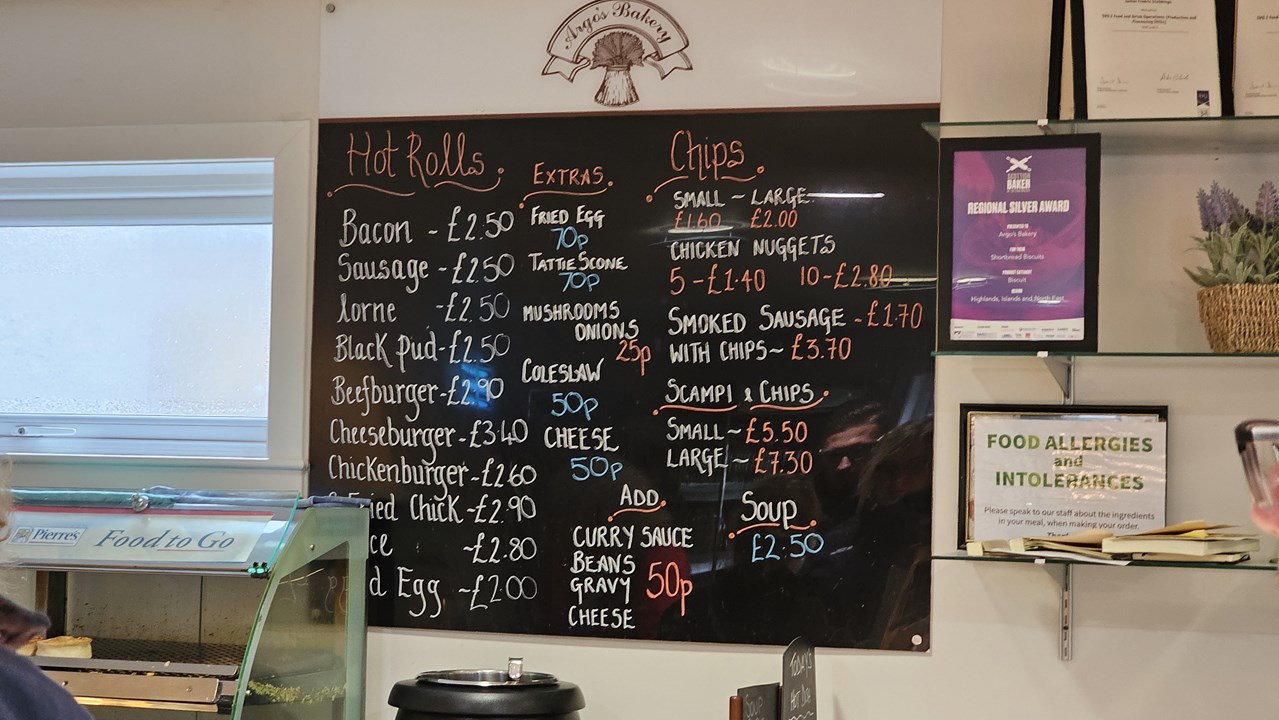 Argo's Bakery
Hot Rolls
Bacon - £2.50
Sausage - £2.50
lorne - £2.50
Black pud - £2.50
Beefburger - £2.90
Cheeseburger - £3.40
Chickenburger - £2.60
Fried Chick - £2.90
~£2.80
Egg ~£2.00
EXTRAS
FRIED EGG
70p
TATTIE SCONE
70p
MUSHROOMS
ONIONS
25p
COLESLAW
50p
CHEESE
50p
ADD
CURRY SAUCE
BEANS
GRAVY 50p
CHEESE
Chips
SMALL ~ LARGE
£1.60 £2.00
CHICKEN NUGGETS
5 - £1.40 10 - £2.80
SMOKED SAUSAGE - £1.70
WITH CHIPS ~ £3.70
SCAMPI & CHIPS
SMALL ~ £5.50
LARGE ~ £7.30
SOUP
£2.50
SCOTTISH
BAKER
REGIONAL SILVER AWARD
PRESENTED TO
Argo's Bakery
FOR THEIR
Shortbread Biscuits
PRODUCT CATEGORY
Biscuit
REGION
Highlands, Islands and North East
FOOD ALLERGIES
and
INTOLERANCES
Please speak to our staff about the ingredients
in your meal, when making your order.
Pierre's Food to Go
TODAY'S
HOT DISH
SOUP